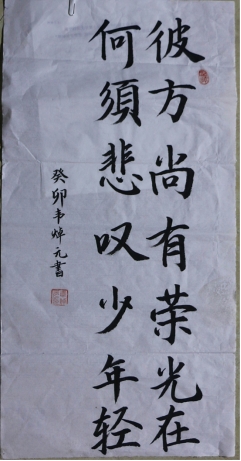 彼方尚有荣光在
何須悲叹少年轻
癸卯韦焯元書